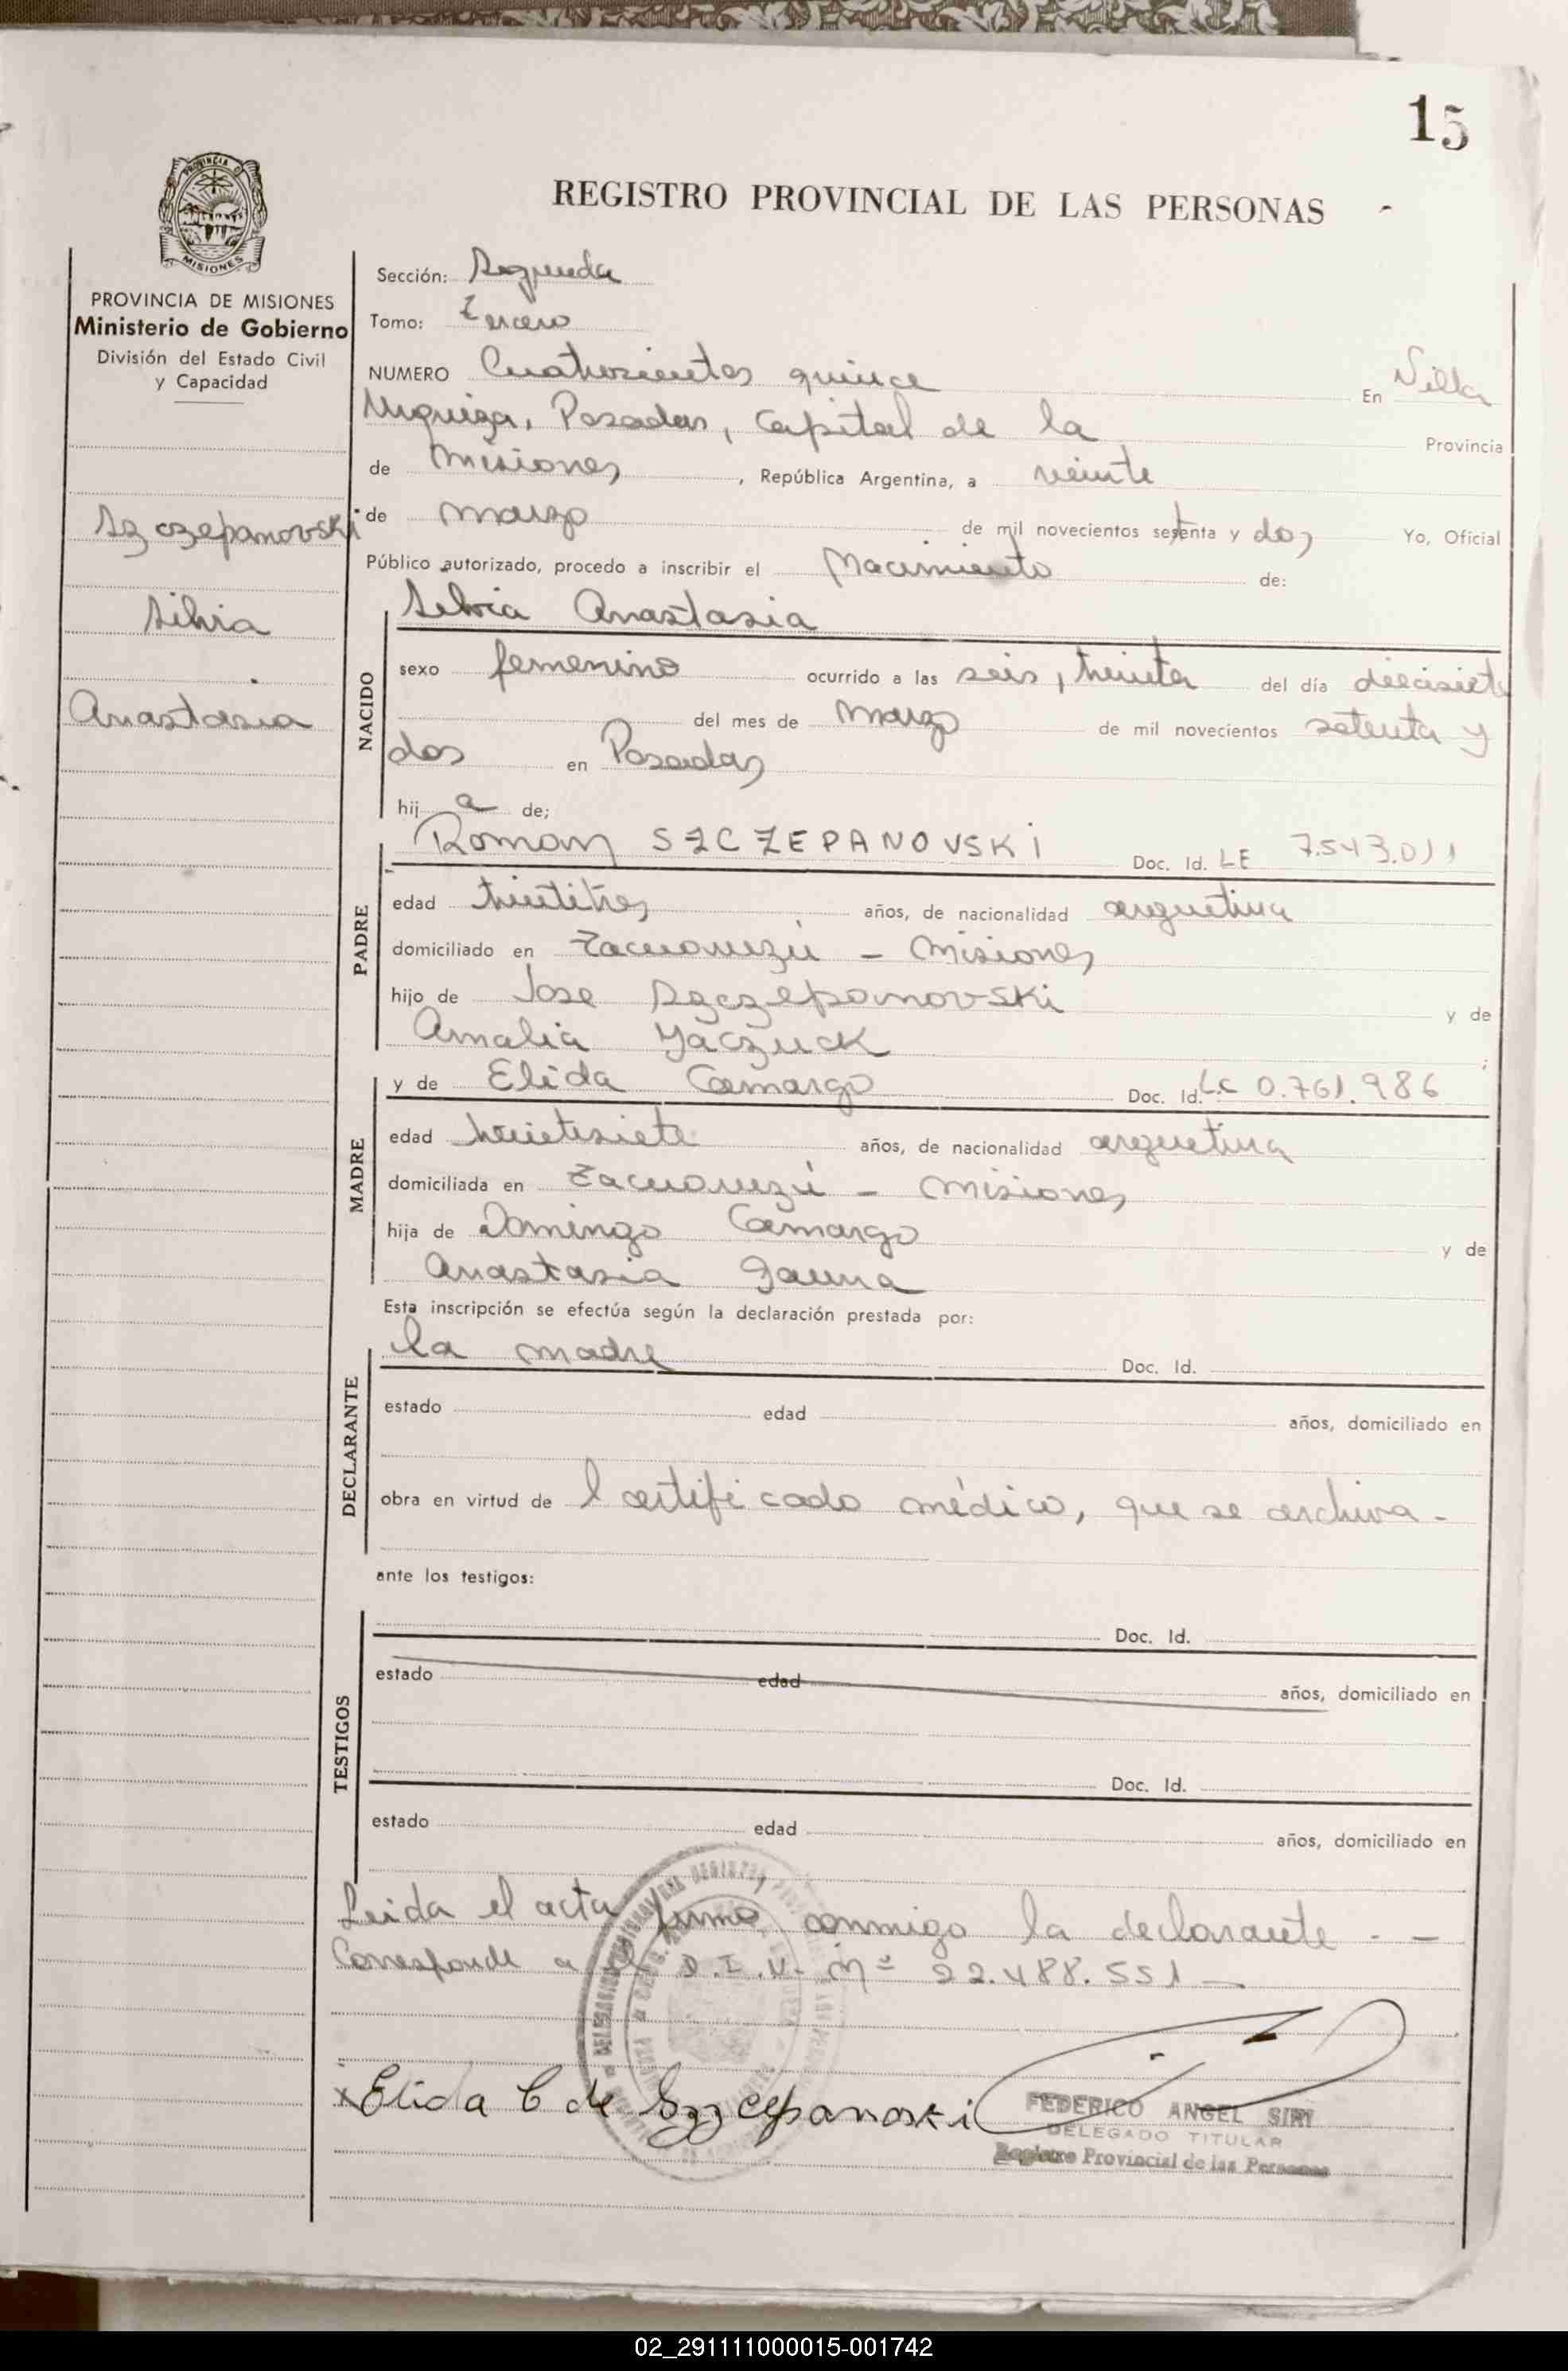 15
REGISTRO PROVINCIAL DE LAS PERSONAS
PROVINCIA
MISIONES
PROVINCIA DE MISIONES
Ministerio de Gobierno
División del Estado Civil
y Capacidad
Szczepanovski
Silvia
Anastasia
Sección: Segunda
Tomo: tercero
NUMERO Cuatrocientos quince En Villa
Urquiza, Posadas, capital de la Provincia
de Misiones, República Argentina, a veinte
de marzo de mil novecientos setenta y dos Yo, Oficial
Público autorizado, procedo a inscribir el Nacimiento de:
NACIDO
Silvia Anastasia
sexo femenino ocurrido a las seis, treinta del día diecisiete
del mes de marzo de mil novecientos setenta y
dos en Posadas
hij a de;
PADRE
Roman SZCZEPANOVSKI Doc. Id. LE 7.543.011
edad treintitres años, de nacionalidad argentina
domiciliado en Tacuaruzú - Misiones
hijo de Jose Szczepanovski y de
Amalia Yaczuck
MADRE
y de Elida Camargo Doc. Id. L.C 0.761.986
edad treintisiete años, de nacionalidad argentina
domiciliada en Tacuaruzú - Misiones
hija de Domingo Camargo y de
Anastasia Gauna
Esta inscripción se efectúa según la declaración prestada por:
DECLARANTE
la madre Doc. Id.
estado edad años, domiciliado en
obra en virtud de l certificado médico, que se archiva -
ante los testigos:
TESTIGOS
Doc. Id.
estado edad años, domiciliado en
Doc. Id.
estado edad años, domiciliado en
Leida el acta firma conmigo la declarante - -
Corresponde a D.I.U. Nº 22.488.551 -
x Elida C de Szzcepanoski
FEDERICO ANGEL SIRI
DELEGADO TITULAR
Registro Provincial de las Personas
02_291111000015-001742